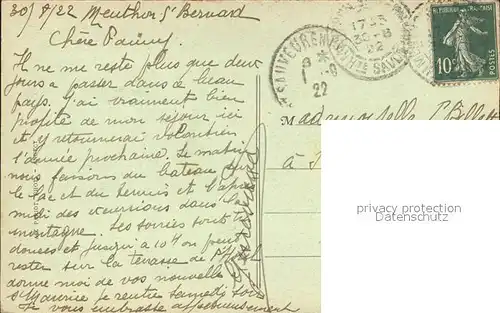 30/8/22 Menthon St Bernard
Chère Fanny
Il ne me reste plus que deux
jours a passer dans ce beau
pays. J'ai vraiment bien
profité de mon séjour ici
et y retournerai volontiers
l'année prochaine. Le matin
nous faisons du bateau sur
le lac et du tennis et l'après
midi des excursions dans la
montagne. Les soirées sont
douces et jusqu'à 10H on peut
rester sur la terrasse de l'Hotel
donne moi de vos nouvelles
St Maurice je rentre samedi soir
Je vous embrasse affectueusement
SAUVETERRE
8
1 -9
22
1735
30-8
22
Hte SAVOIE
REPUBLIQUE FRANÇAISE
10c
POSTES
Mademoiselle
à
privacy protection
Datenschutz